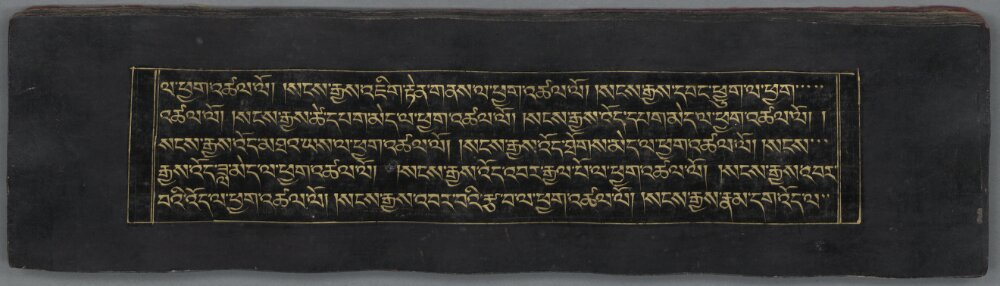 ལ་ཕྱག་འཚལ་ལོ། །སངས་རྒྱས་འཇིག་རྟེན་གནས་ལ་ཕྱག་འཚལ་ལོ། །སངས་རྒྱས་དབང་ཕྱུག་ལ་ཕྱག་་་་
འཚལ་ལོ། །སངས་རྒྱས་ཚེ་དཔག་མེད་ལ་ཕྱག་འཚལ་ལོ། །སངས་རྒྱས་འོད་དཔག་མེད་ལ་ཕྱག་འཚལ་ལོ། །
སངས་རྒྱས་འོད་མཐའ་ཡས་ལ་ཕྱག་འཚལ་ལོ། །སངས་རྒྱས་འོད་ཐོགས་མེད་ལ་ཕྱག་འཚལ་ལོ། །སངས་་་
རྒྱས་འོད་ཟླ་མེད་ལ་ཕྱག་འཚལ་ལོ། །སངས་རྒྱས་འོད་འབར་རྒྱལ་པོ་ལ་ཕྱག་འཚལ་ལོ། །སངས་རྒྱས་འབར་
བའི་འོད་ལ་ཕྱག་འཚལ་ལོ། །སངས་རྒྱས་འབར་བའི་རྩ་བ་ལ་ཕྱག་འཚལ་ལོ། །སངས་རྒྱས་རྣམ་དག་འོད་ལ་་